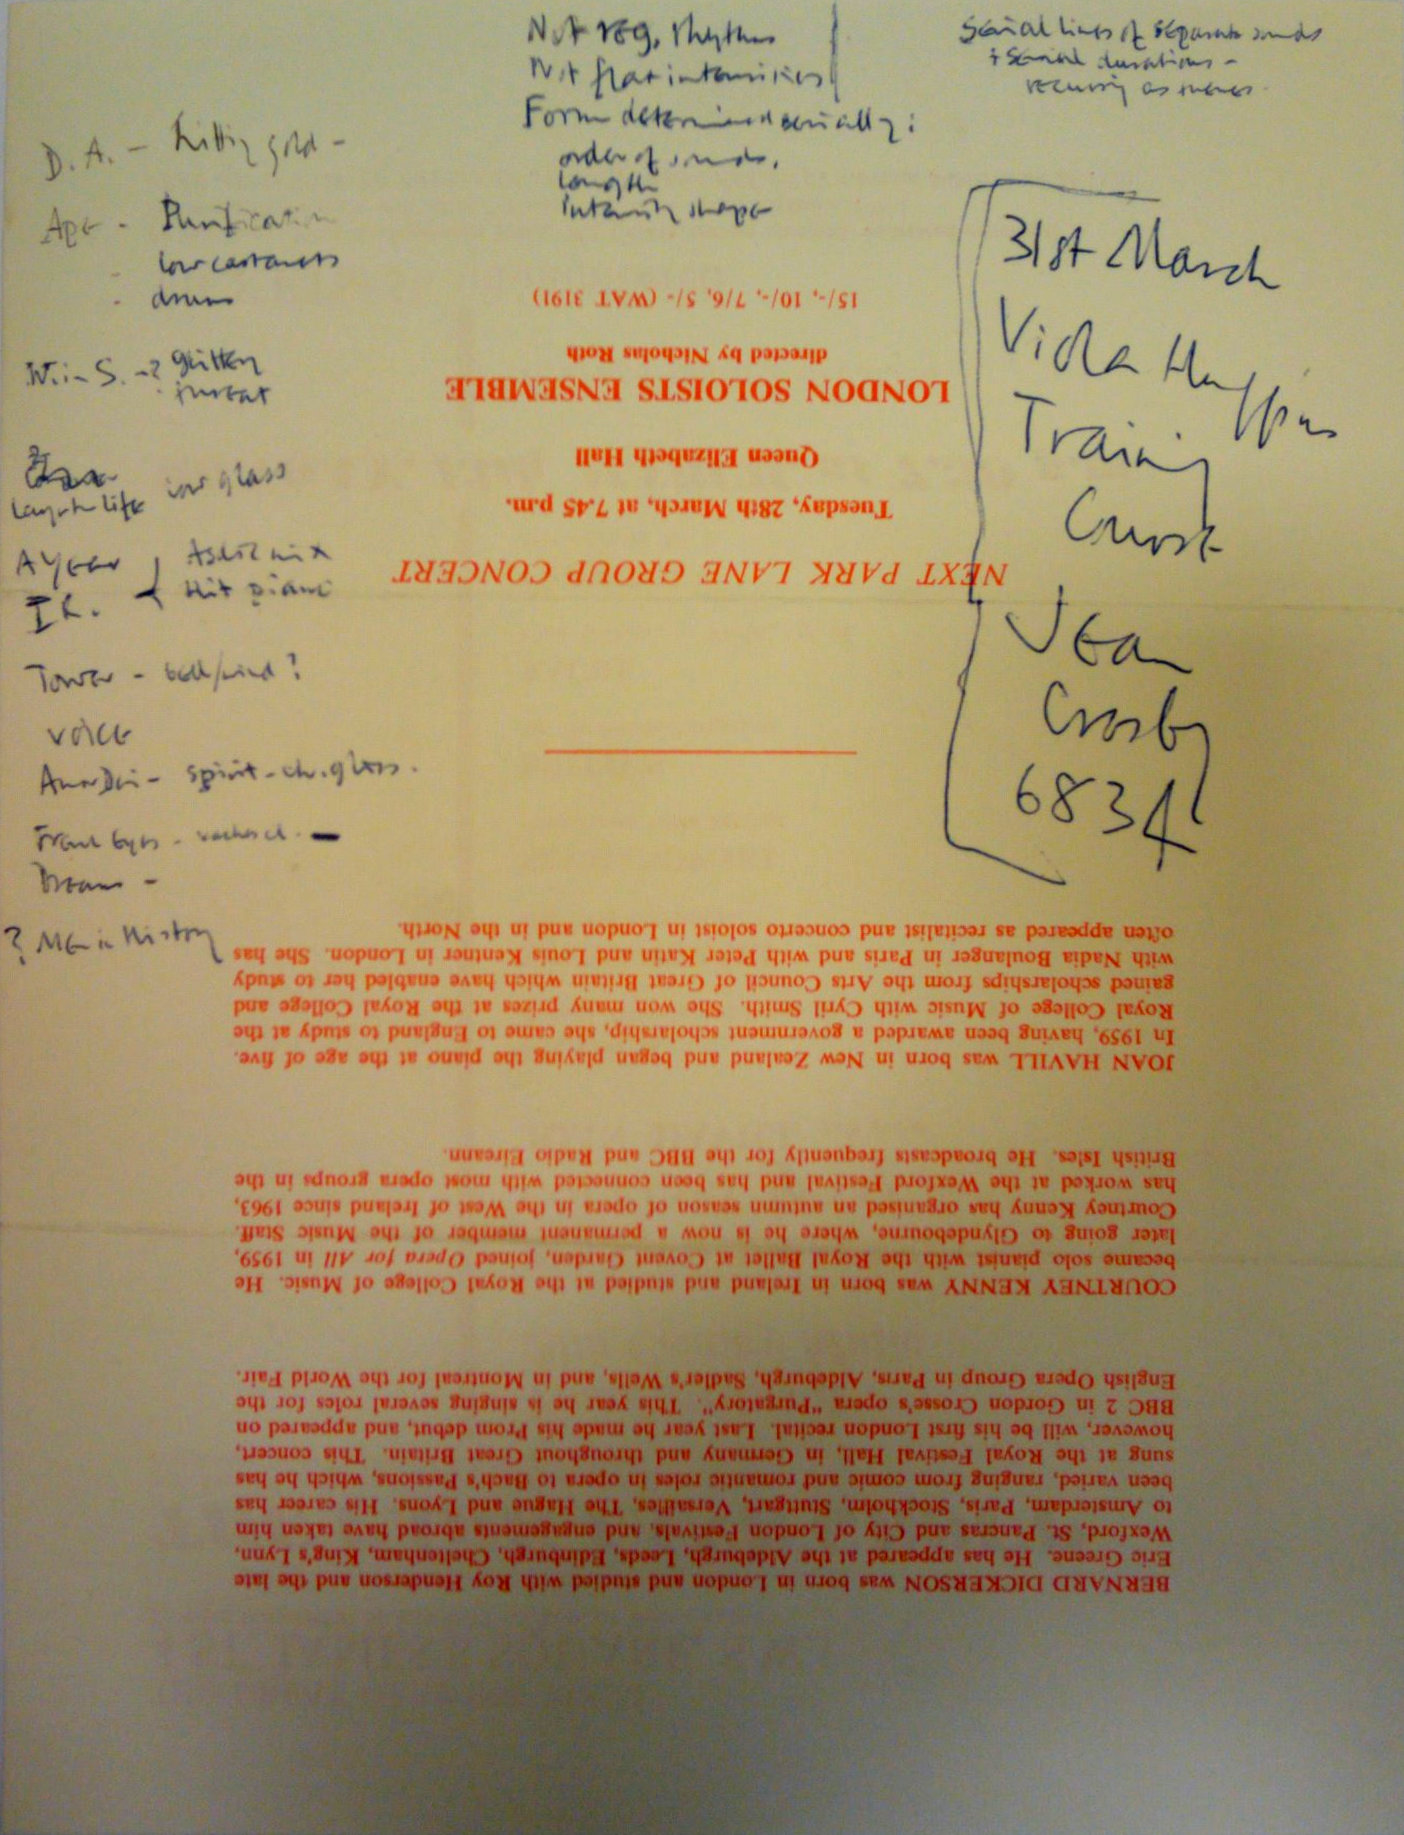 Not reg. rhythms
Not flat intensities
Form determined serially:
order of sounds,
length
intensity shape
Serial lines of separate sounds
+ serial durations -
recurring as themes.
D. A. - hitting gold -
Ape - Purification
- low castanets
- drums
W. in S. - ?
low glass
A Year
Hit piano
Tower - bell/wind?
Voice
spirit - ch. glass.
Dream -
? Men in History
31st March
Viola
Training
Course
Jean
Crosby
6834
BERNARD DICKERSON was born in London and studied with Roy Henderson and the late
Eric Greene. He has appeared at the Aldeburgh, Leeds, Edinburgh, Cheltenham, King's Lynn,
Wexford, St. Pancras and City of London Festivals, and engagements abroad have taken him
to Amsterdam, Paris, Stockholm, Stuttgart, Versailles, The Hague and Lyons. His career has
been varied, ranging from comic and romantic roles in opera to Bach's Passions, which he has
sung at the Royal Festival Hall, in Germany and throughout Great Britain. This concert,
however, will be his first London recital. Last year he made his Prom debut, and appeared on
BBC 2 in Gordon Crosse's opera "Purgatory". This year he is singing several roles for the
English Opera Group in Paris, Aldeburgh, Sadler's Wells, and in Montreal for the World Fair.
COURTNEY KENNY was born in Ireland and studied at the Royal College of Music. He
became solo pianist with the Royal Ballet at Covent Garden, joined Opera for All in 1959,
later going to Glyndebourne, where he is now a permanent member of the Music Staff.
Courtney Kenny has organised an autumn season of opera in the West of Ireland since 1963,
has worked at the Wexford Festival and has been connected with most opera groups in the
British Isles. He broadcasts frequently for the BBC and Radio Eireann.
JOAN HAVILL was born in New Zealand and began playing the piano at the age of five.
In 1959, having been awarded a government scholarship, she came to England to study at the
Royal College of Music with Cyril Smith. She won many prizes at the Royal College and
gained scholarships from the Arts Council of Great Britain which have enabled her to study
with Nadia Boulanger in Paris and with Peter Katin and Louis Kentner in London. She has
often appeared as recitalist and concerto soloist in London and in the North.
NEXT PARK LANE GROUP CONCERT
Tuesday, 28th March, at 7.45 p.m.
Queen Elizabeth Hall
LONDON SOLOISTS ENSEMBLE
directed by Nicholas Roth
15/-, 10/-, 7/6, 5/- (WAT 3191)